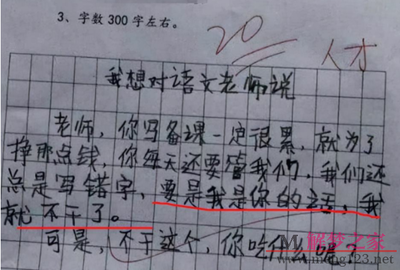 3、字数300字左右。
20
人才
我想对语文老师说
老师，你写备课一定很累，就为了
挣那点钱，你每天还要管我们，我们还
总是写错字，要是我是你的话，我
就不干了。
可是，不干这个，你吃什么呢？
解梦之家
www.meng123.net